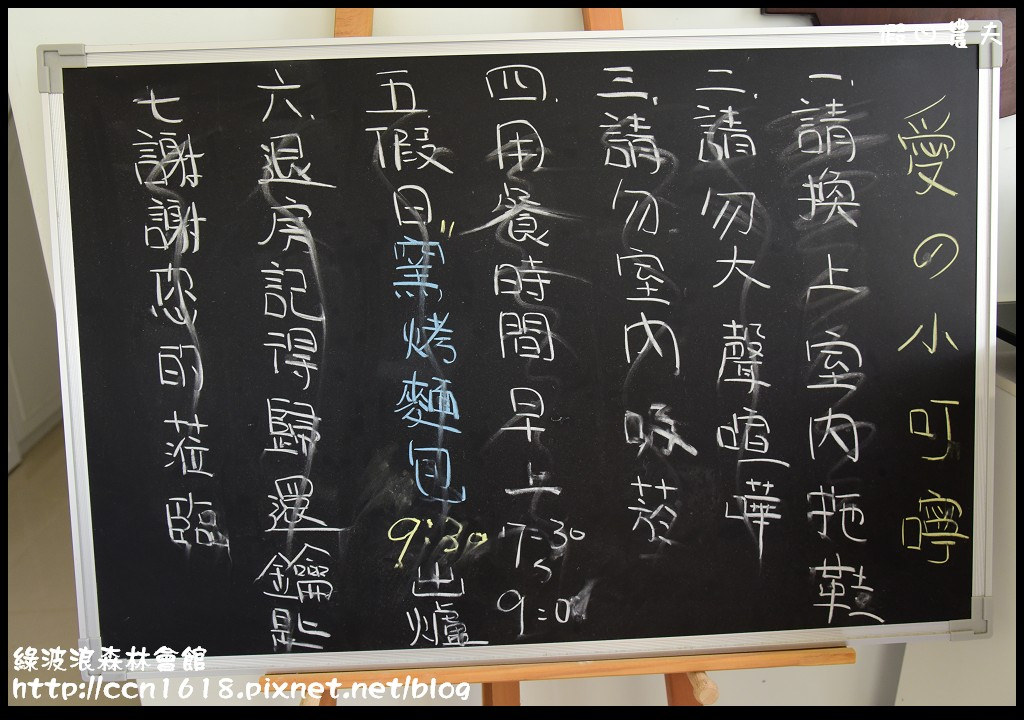 愛の小叮嚀
一.請換上室內拖鞋
二.請勿大聲喧嘩
三.請勿室內吸菸
四.用餐時間早上7:30
~
9:0
五.假日"窯烤麵包9:30出爐
六.退房記得歸還鑰匙
七謝謝您的蒞臨
假日農夫
綠波浪森林會館
http://ccn1618.pixnet.net/blog